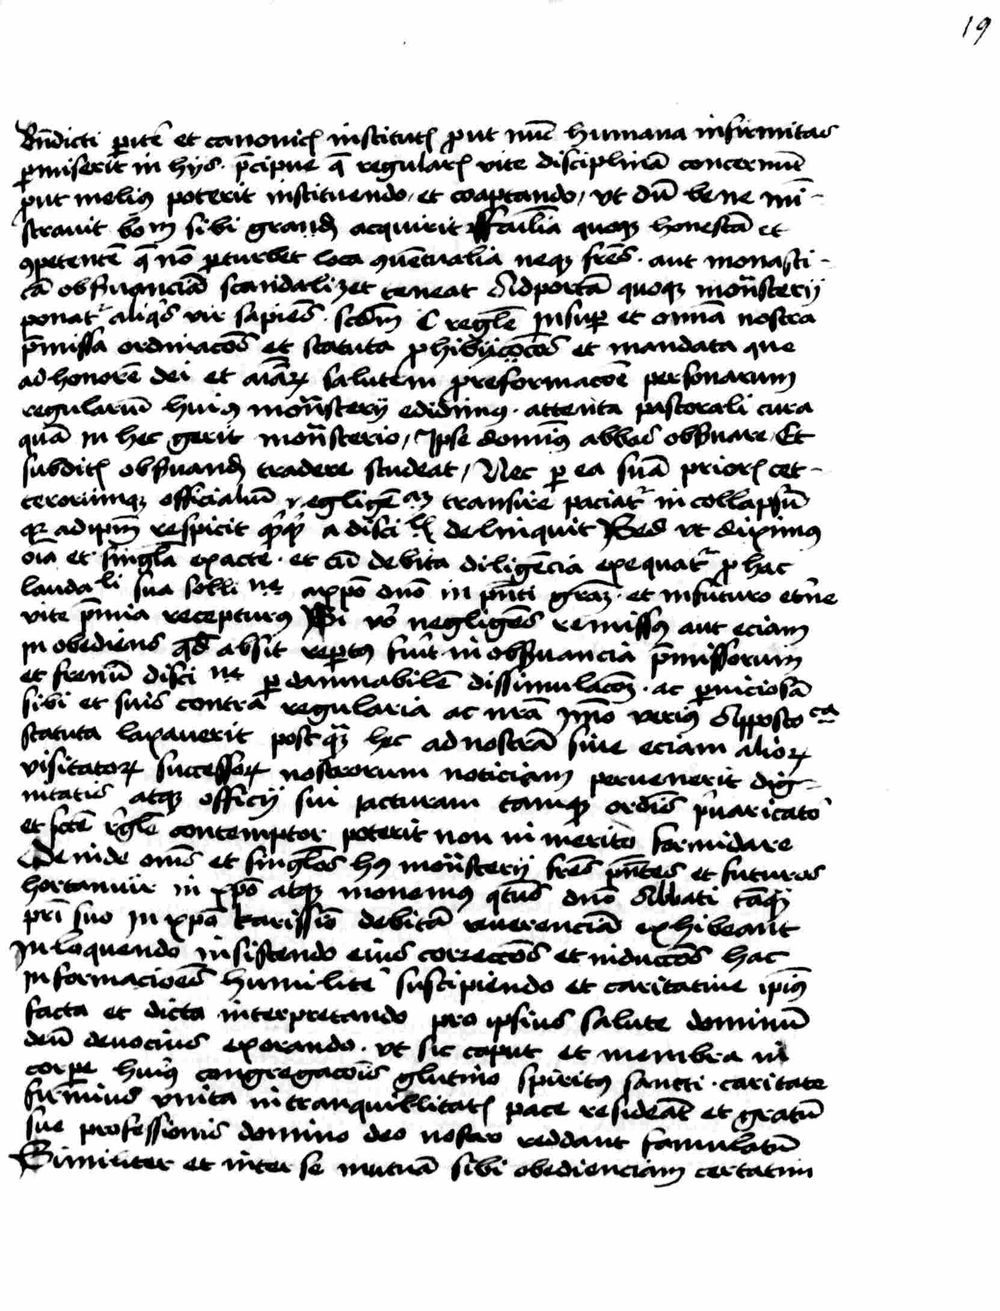 19
Bñdicti pariter et canonicis institutis prout nunc humana infirmitas
permiserit in hijs. precipue que regularis vite disciplinam concernunt
prout melius poterit instituendo, et coaptando, vt dum bene mi-
stravit bonum sibi gradum acquirit familiam quoque honestam et
competentem que non perturbet loca conventualia neque fratres. aut monasti-
cam observanciam scandalizet teneat Ad portam quoque monasterij
ponatur aliquis vir sapiens. secundum regulam Insuper et omnia nostra
premissa ordinaciones et statuta prohibiciones et mandata que
ad honorem dei et animarum salutem pro reformacione personarum
regularium huius monasterij edidimus. attenta pastorali cura
quam in hec gerit monasterio, Ipse dominus abbas observare Et
subditis observanda tradere studeat, Nec per ea suam prioris cet-
terorumque officialium negligenciam transire paciatur in collapsum
quia ad ipsum respicit quicquid a delinquit Sed vt diximus
omnia et singula exacte. et cum debita diligencia exequatur pro hac
laudabili sua sollicitudine a christo domino in presenti graciam. et in futuro eterne
vite premia recepturus Si vero negligens remissus aut eciam
inobediens quod absit repertus fuerit in observancia premissorum
et frenum discipline per damnabilem dissimulacionem. ac perniciosam
sibi et suis contra regularia ac nostra ymmo verius Apostolica
statuta laxaverit postquam hec ad nostram sive eciam aliorum
visitatorum successorum nostrorum noticiam pervenerit dig-
nitatis atque officij sui jacturam tamquam ordinis prevaricator
et sancte regule contemptor poterit non inmerito formidare
Deinde omnes et singulos huius monasterij fratres presentes et futuros
hortamur in christo atque monemus quatenus domino Abbati tamquam
patri suo in christo karissimo debitam reverenciam exhibeant
In loquendo insistendo eius correcciones et inducciones hac
informaciones humiliter suscipiendo et caritative ipsius
facta et dicta interpretando pro ipsius salute dominum
deum devocius exorando. vt sic caput et membra in
corpore huius congregacionis glutino spiritus sancti. caritate
firmius vnita in tranquillitatis pace resideant et gratum
sue professionis domino deo nostro reddant famulatum
Similiter et inter se mutuam sibi obedienciam certatim